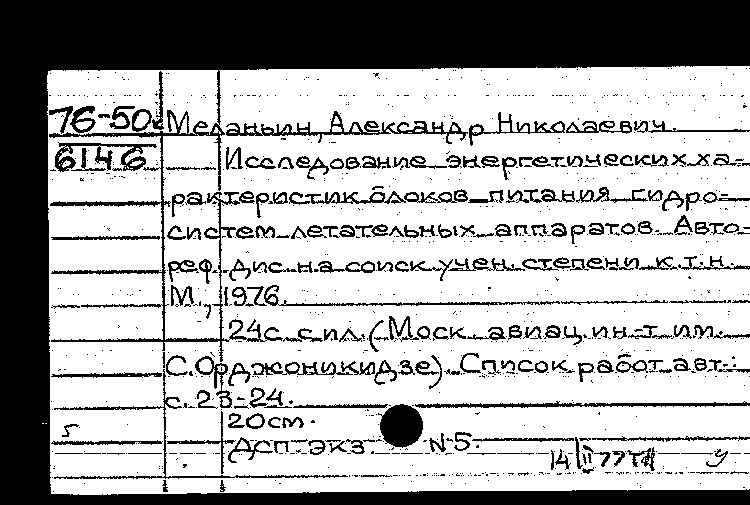 76-50к Меланьин, Александр Николаевич.
6146 Исследование энергетических ха-
рактеристик блоков питания гидро-
систем летательных аппаратов. Авто-
реф. дис. на соиск. учен. степени к.т.н.
М., 1976.
24с. с ил. (Моск. авиац. ин-т им.
С. Орджоникидзе). Список работ авт.:
с. 23-24.
20см.
5 Дсп. экз. N5.
14 II 77 у